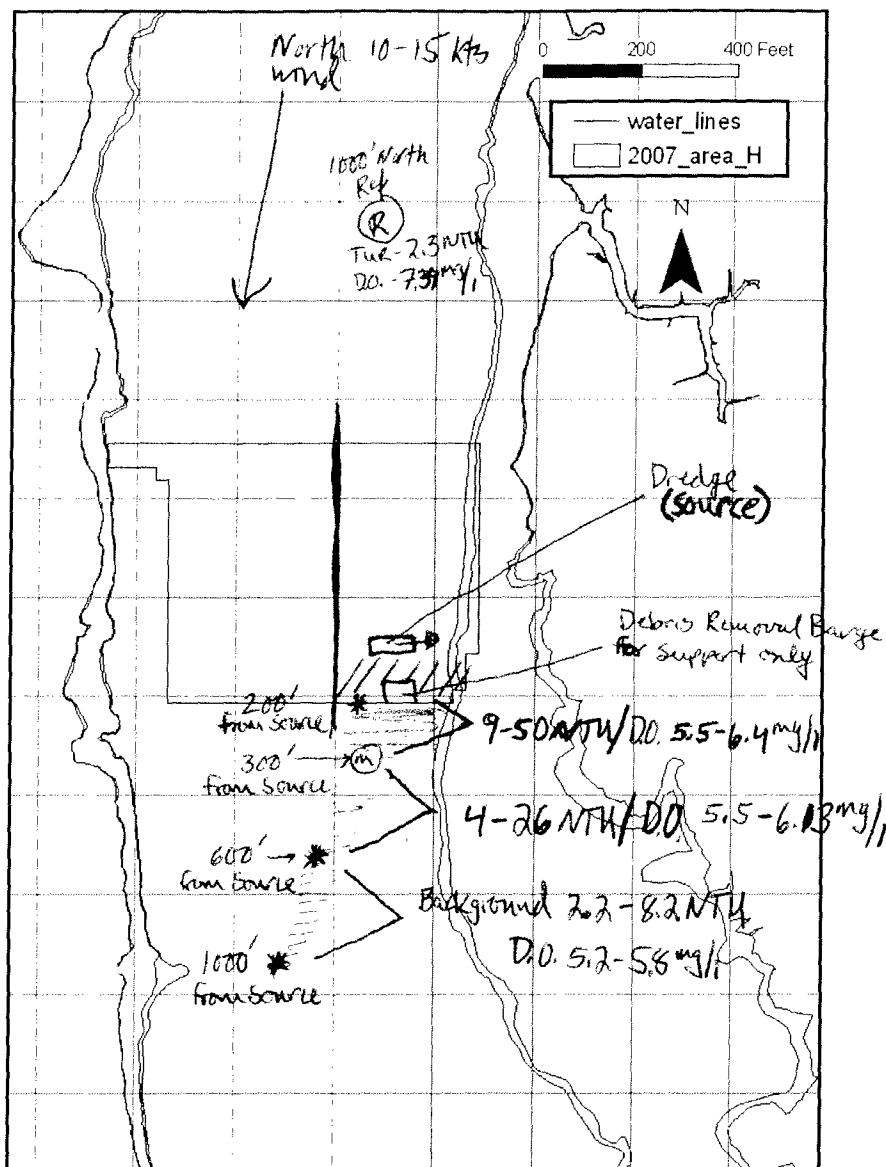 North 10-15 kts
wind
0 200 400 Feet
water_lines
2007_area_H
1000' North
Ref
R
Tur - 2.3 NTU
D.O. - 7.39 mg/l
N
Dredge
(source)
Debris Removal Barge
for support only
200'
from source
9-50 NTU/D.O. 5.5-6.4 mg/l
300'
from source
m
4-26 NTU/DO 5.5-6.13 mg/l
600'
from source
Background 2.2-8.2 NTU
D.O. 5.2-5.8 mg/l
1000'
from source